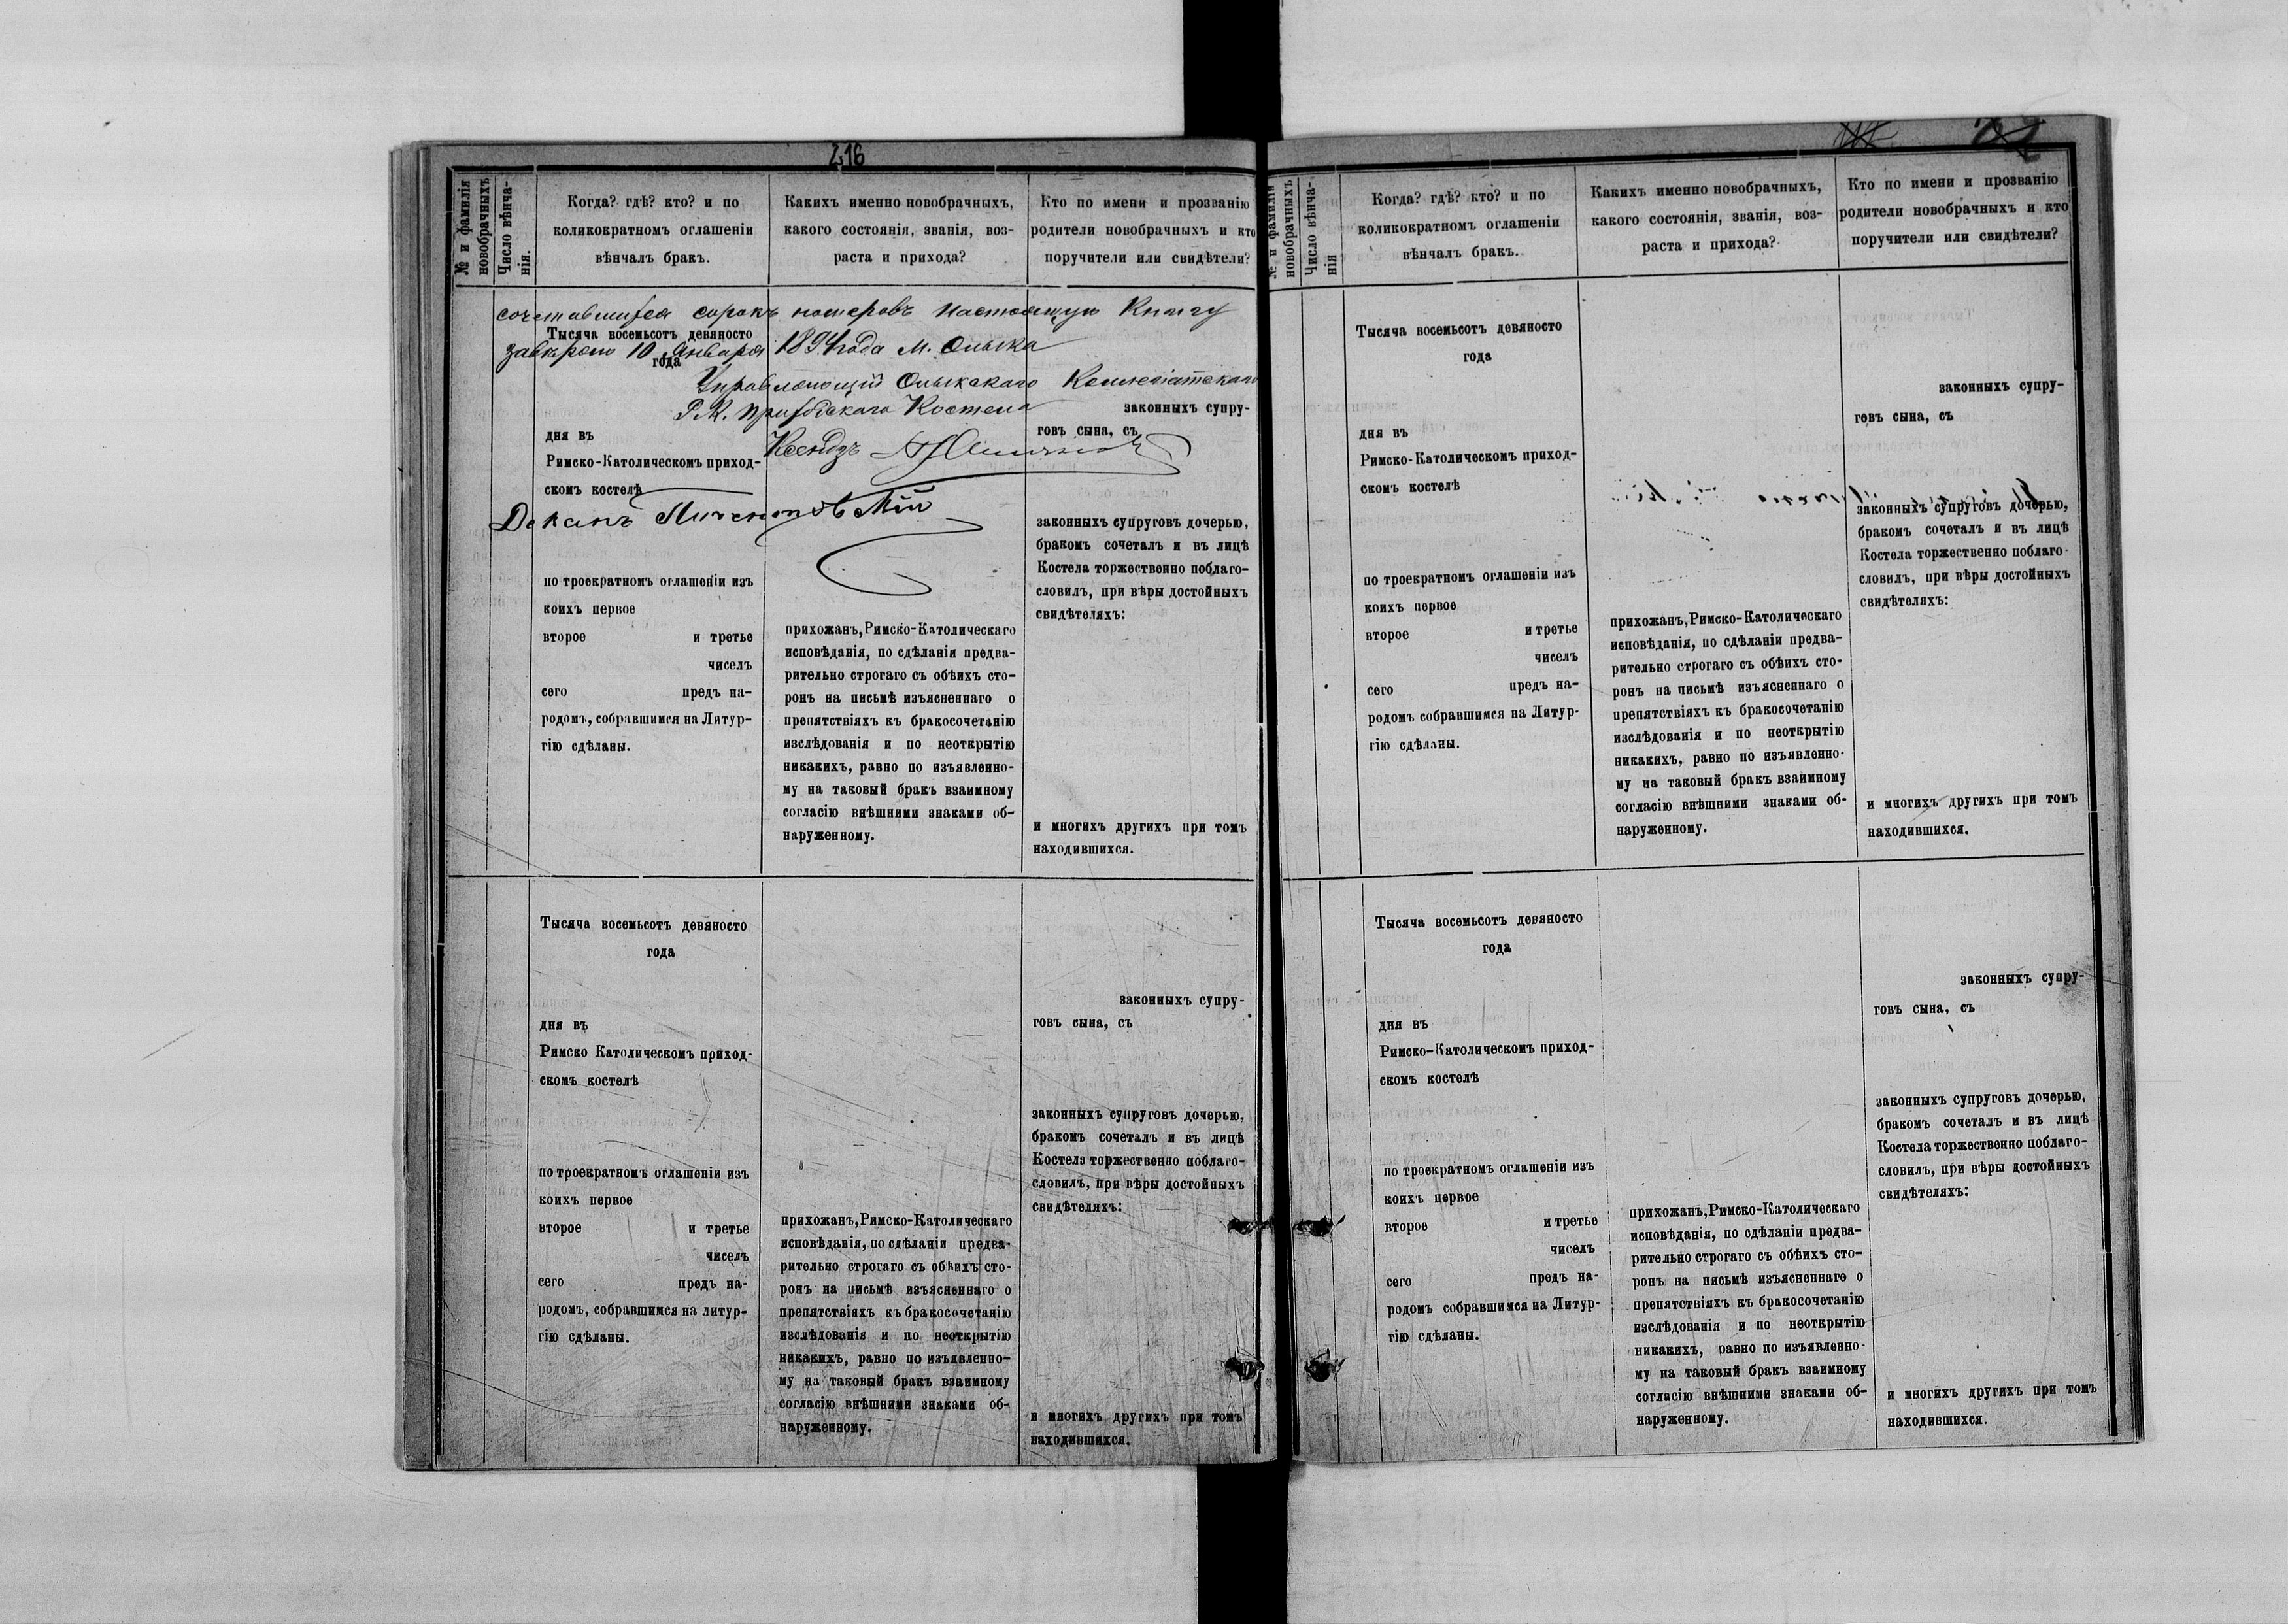 216
№ и фамилія
новобрачныхъ
Число вѣнча-
нія.
Когда? гдѣ? кто? и по
коликократномъ оглашеніи
вѣнчалъ бракъ.
Какихъ именно новобрачныхъ,
какого состоянія, званія, воз-
раста и прихода?
Кто по имени и прозванію
родители новобрачныхъ и кто
поручители или свидѣтели?
сочетавшихся сорокъ номеровъ настоящую Книгу
Тысяча восемьсотъ девяносто
года
10 Января 1894 года М. Олыка
Управляющій Олыкскаго Коллегіатскаго
Р. К. приходскаго Костела
Ксендзъ
Деканъ
дня въ
Римско-Католическомъ приход-
скомъ костелѣ
по троекратномъ оглашеніи изъ
коихъ первое
второе и третье
чиселъ
сего предъ на-
родомъ, собравшимся на Литур-
гію сдѣланы.
прихожанъ, Римско-Католическаго
исповѣданія, по сдѣланіи предва-
рительно строгаго съ обѣихъ сто-
ронъ на письмѣ изъясненнаго о
препятствіяхъ къ бракосочетанію
изслѣдованія и по неоткрытію
никакихъ, равно по изъявленно-
му на таковый бракъ взаимному
согласію внѣшними знаками об-
наруженному.
законныхъ супру-
говъ сына, съ
законныхъ супруговъ дочерью,
бракомъ сочеталъ и въ лицѣ
Костела торжественно поблаго-
словилъ, при вѣры достойныхъ
свидѣтеляхъ:
и многихъ другихъ при томъ
находившихся.
Тысяча восемьсотъ девяносто
года
дня въ
Римско Католическомъ приход-
скомъ костелѣ
по троекратномъ оглашеніи изъ
коихъ первое
второе и третье
чиселъ
сего предъ на-
родомъ, собравшимся на литур-
гію сдѣланы.
прихожанъ, Римско-Католическаго
исповѣданія, по сдѣланіи предва-
рительно строгаго съ обѣихъ сто-
ронъ на письмѣ изъясненнаго о
препятствіяхъ къ бракосочетанію
изслѣдованія и по неоткрытію
никакихъ, равно по изъявленно-
му на таковый бракъ взаимному
согласію внѣшними знаками об-
наруженному.
законныхъ супру-
говъ сына, съ
законныхъ супруговъ дочерью,
бракомъ сочеталъ и въ лицѣ
Костела торжественно поблаго-
словилъ, при вѣры достойныхъ
свидѣтеляхъ:
и многихъ другихъ при томъ
находившихся.
№ и фамилія
новобрачныхъ
Число вѣнча-
нія
Когда? гдѣ? кто? и по
коликократномъ оглашеніи
вѣнчалъ бракъ.
Какихъ именно новобрачныхъ,
какого состоянія, званія, воз-
раста и прихода?
Кто по имени и прозванію
родители новобрачныхъ и кто
поручители или свидѣтели?
Тысяча восемьсотъ девяносто
года
дня въ
Римско-Католическомъ приход-
скомъ костелѣ
по троекратномъ оглашеніи изъ
коихъ первое
второе и третье
чиселъ
сего предъ на-
родомъ собравшимся на Литур-
гію сдѣланы.
прихожанъ, Римско-Католическаго
исповѣданія, по сдѣланіи предва-
рительно строгаго съ обѣихъ сто-
ронъ на письмѣ изъясненнаго о
препятствіяхъ къ бракосочетанію
изслѣдованія и по неоткрытію
никакихъ, равно по изъявленно-
му на таковый бракъ взаимному
согласію внѣшними знаками об-
наруженному.
законныхъ супру-
говъ сына, съ
законныхъ супруговъ дочерью,
бракомъ сочеталъ и въ лицѣ
Костела торжественно поблаго-
словилъ, при вѣры достойныхъ
свидѣтеляхъ:
и многихъ другихъ при томъ
находившихся.
Тысяча восемьсотъ девяносто
года
дня въ
Римско-Католическомъ приход-
скомъ костелѣ
по троекратномъ оглашеніи изъ
коихъ первое
второе и третье
чиселъ
сего предъ на-
родомъ собравшимся на Литур-
гію сдѣланы.
прихожанъ, Римско-Католическаго
исповѣданія, по сдѣланіи предва-
рительно строгаго съ обѣихъ сто-
ронъ на письмѣ изъясненнаго о
препятствіяхъ къ бракосочетанію
изслѣдованія и по неоткрытію
никакихъ, равно по изъявленно-
му на таковый бракъ взаимному
согласію внѣшними знаками об-
наруженному.
законныхъ супру-
говъ сына, съ
законныхъ супруговъ дочерью,
бракомъ сочеталъ и въ лицѣ
Костела торжественно поблаго-
словилъ, при вѣры достойныхъ
свидѣтеляхъ:
и многихъ другихъ при томъ
находившихся.